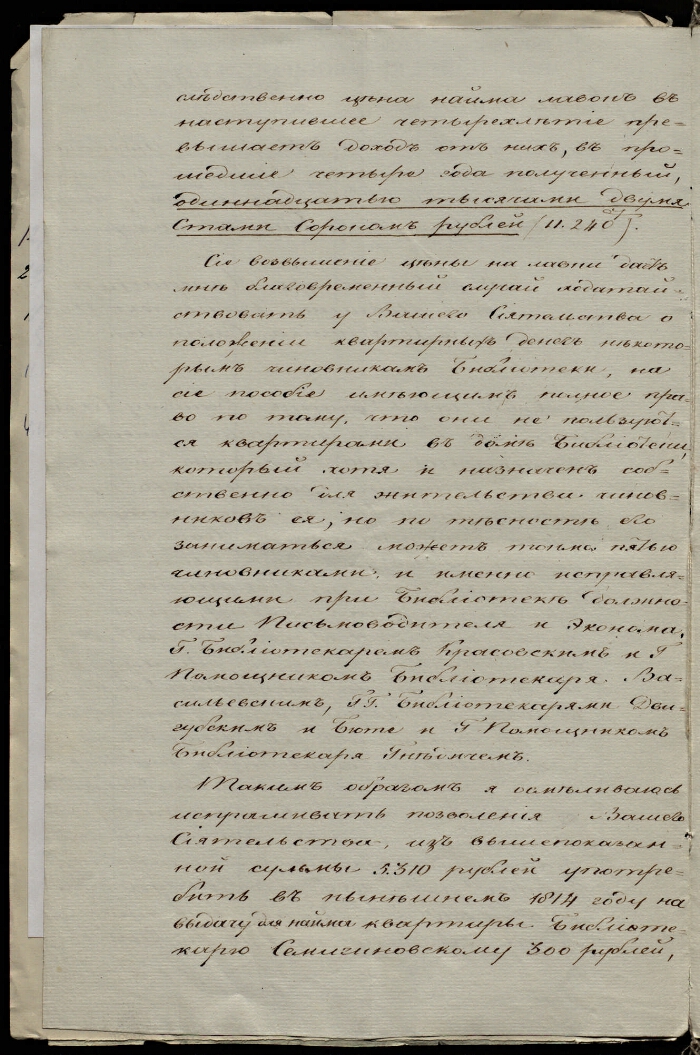 слѣдственно цѣна найма лавокъ въ
наступившее четырехлѣтіе пре-
вышаетъ доходъ отъ нихъ, въ про-
шедшіе четыре года полученный,
одиннадцатью тысячами двумя
Стами Сорокомъ рублей (11.240).
Сіе возвышеніе цѣны на лавки даетъ
мнѣ благовременный случай ходатай-
ствовать у Вашего Сіятельства о
положеніи квартирныхъ денегъ нѣкото-
рымъ чиновникамъ Библіотеки, на
сіе пособіе имѣющимъ полное пра-
во по тому, что они не пользуют-
ся квартирами въ домѣ Библіотеки,
который хотя и назначенъ соб-
ственно для жительства чинов-
никовъ ея, но по тѣсности его
заниматься можетъ токмо пятью
чиновниками, и именно исправля-
ющими при Библіотекѣ должно-
сти Письмоводителя и Эконома,
Г. Библіотекаремъ Красовскимъ и Г
Помощникомъ Библіотекаря Ва-
сильевскимъ, ГГ. Библіотекарями Дви-
губскимъ и Бюте и Г Помощникомъ
Библіотекаря Гнѣдичемъ.
Такимъ образомъ я осмѣливаюсь
испрашивать позволенія Вашего
Сіятельства, изъ вышепоказан-
ной суммы 5.310 рублей употре-
бить въ нынѣшнемъ 1814 году на
выдачу для найма квартиры Библіоте-
карю Семигиновскому 300 рублей,
1.
2
1
1
4